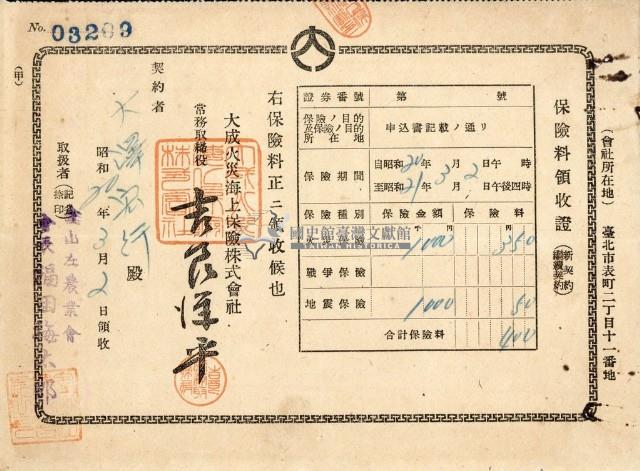 No. 03209
(甲)
(會社所在地) 臺北市表町二丁目十一番地
保險料領收證 (新契約 繼續契約)
證券番號 第 號
保險ノ目的及保險ノ目的所在地 申込書記載ノ通リ
保險期間 自昭和20年3月2日午 時
至昭和21年3月2日午後四時
保險種別 保險金額 保險料
火災保險 1000 350
戰爭保險
地震保險 1000 50
合計保險料 400
右保險料正ニ領收候也
大成火災海上保險株式會社
常務取締役
契約者 殿
昭和20年3月2日領收
取扱者 (記名捺印)
農業會
會長 福田
國史館臺灣文獻館
TAIWAN HISTORICA